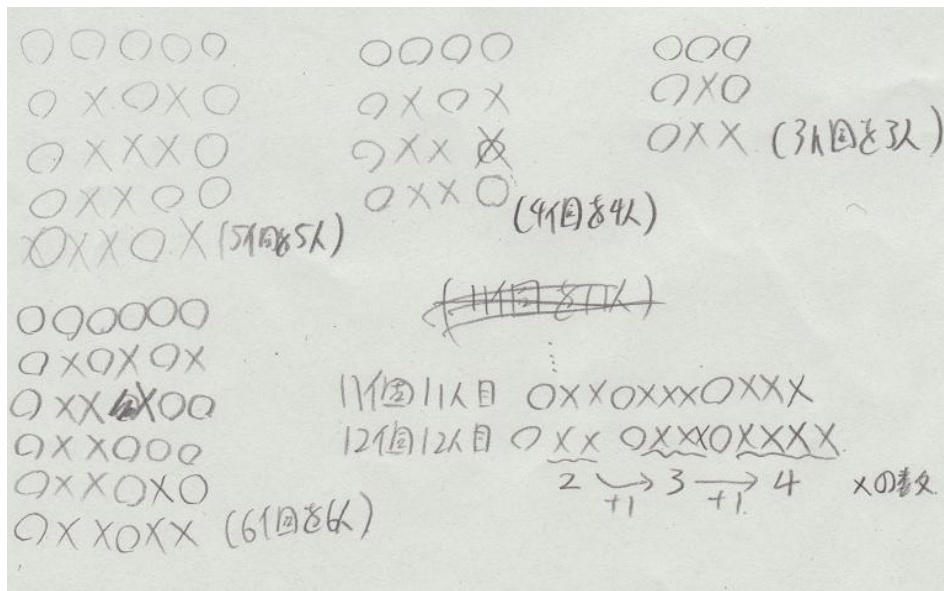 ○○○○○
○×○×○
○×××○
○××○○
○××○× (5個を5人)
○○○○
○×○×
○××
○××○ (4個を4人)
○○○
○×○
○×× (3個を3人)
○○○○○○
○×○×○×
○×××○○
○××○○○
○××○×○
○××○×× (6個を6人)
(11個を11人)
11個11人目 ○××○×××○×××
12個12人目 ○××○×××○××××
2 → 3 → 4 ×の数
+1 +1